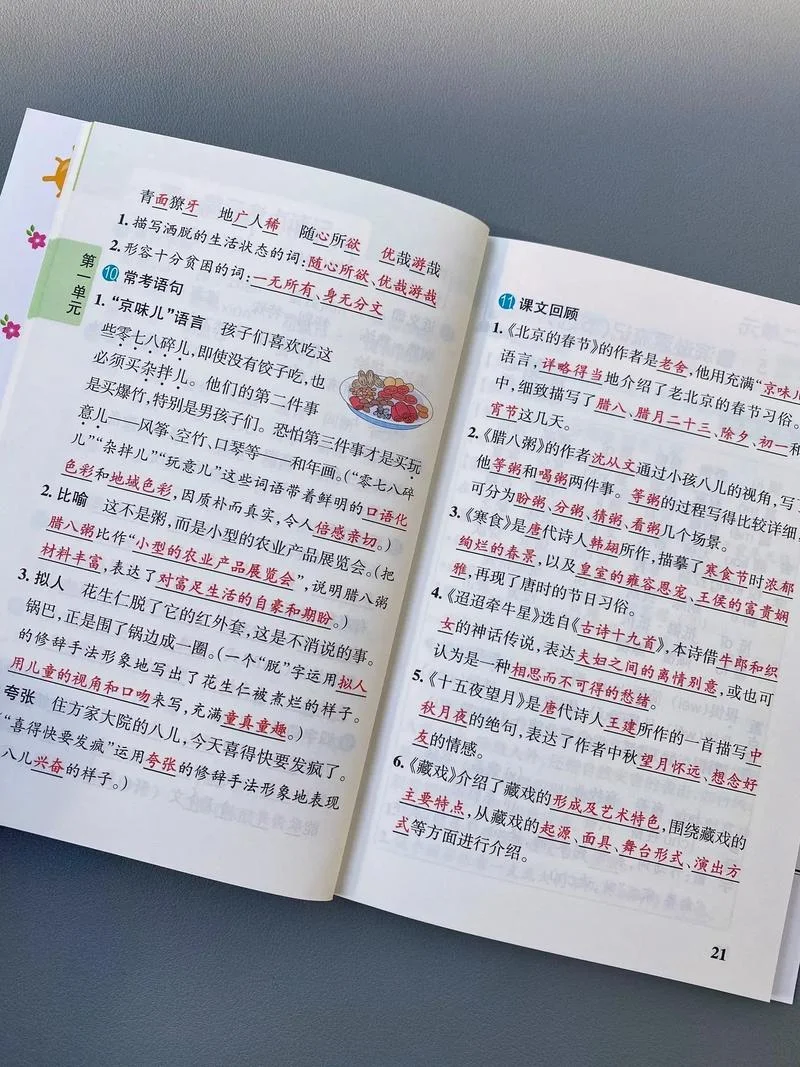 第一单元
青面獠牙 地广人稀 随心所欲 优哉游哉
1. 描写洒脱的生活状态的词:随心所欲、优哉游哉
2. 形容十分贫困的词:一无所有、身无分文
10 常考语句
1. “京味儿”语言 孩子们喜欢吃这
些零七八碎儿,即使没有饺子吃,也
必须买杂拌儿。他们的第二件事
是买爆竹,特别是男孩子们。恐怕第三件事才是买玩
意儿——风筝、空竹、口琴等——和年画。(“零七八碎
儿”“杂拌儿”“玩意儿”这些词语带着鲜明的口语化
色彩和地域色彩,因质朴而真实,令人倍感亲切。)
2. 比喻 这不是粥,而是小型的农业产品展览会。(把
腊八粥比作“小型的农业产品展览会”,说明腊八粥
材料丰富,表达了对富足生活的自豪和期盼。)
3. 拟人 花生仁脱了它的红外套,这是不消说的事。
锅巴,正是围了锅边成一圈。(一个“脱”字运用拟人
的修辞手法形象地写出了花生仁被煮烂的样子。
用儿童的视角和口吻来写,充满童真童趣。)
夸张 住方家大院的八儿,今天喜得快要发疯了。
“喜得快要发疯”运用夸张的修辞手法形象地表现
八儿兴奋的样子。)
11 课文回顾
1.《北京的春节》的作者是老舍,他用充满“京味儿
语言,详略得当地介绍了老北京的春节习俗。
中,细致描写了腊八、腊月二十三、除夕、初一和
宵节这几天。
2.《腊八粥》的作者沈从文通过小孩八儿的视角,写
他等粥和喝粥两件事。等粥的过程写得比较详细,
可分为盼粥、分粥、猜粥、看粥几个场景。
3.《寒食》是唐代诗人韩翃所作,描摹了寒食节时浓郁
绚烂的春景,以及皇室的雍容恩宠、王侯的富贵娴
雅,再现了唐时的节日习俗。
4.《迢迢牵牛星》选自《古诗十九首》,本诗借牛郎和织
女的神话传说,表达夫妇之间的离情别意,或也可
认为是一种相思而不可得的愁绪。
5.《十五夜望月》是唐代诗人王建所作的一首描写中
秋月夜的绝句,表达了作者中秋望月怀远、想念好
友的情感。
6.《藏戏》介绍了藏戏的形成及艺术特色,围绕藏戏的
主要特点,从藏戏的起源、面具、舞台形式、演出方
式等方面进行介绍。
21